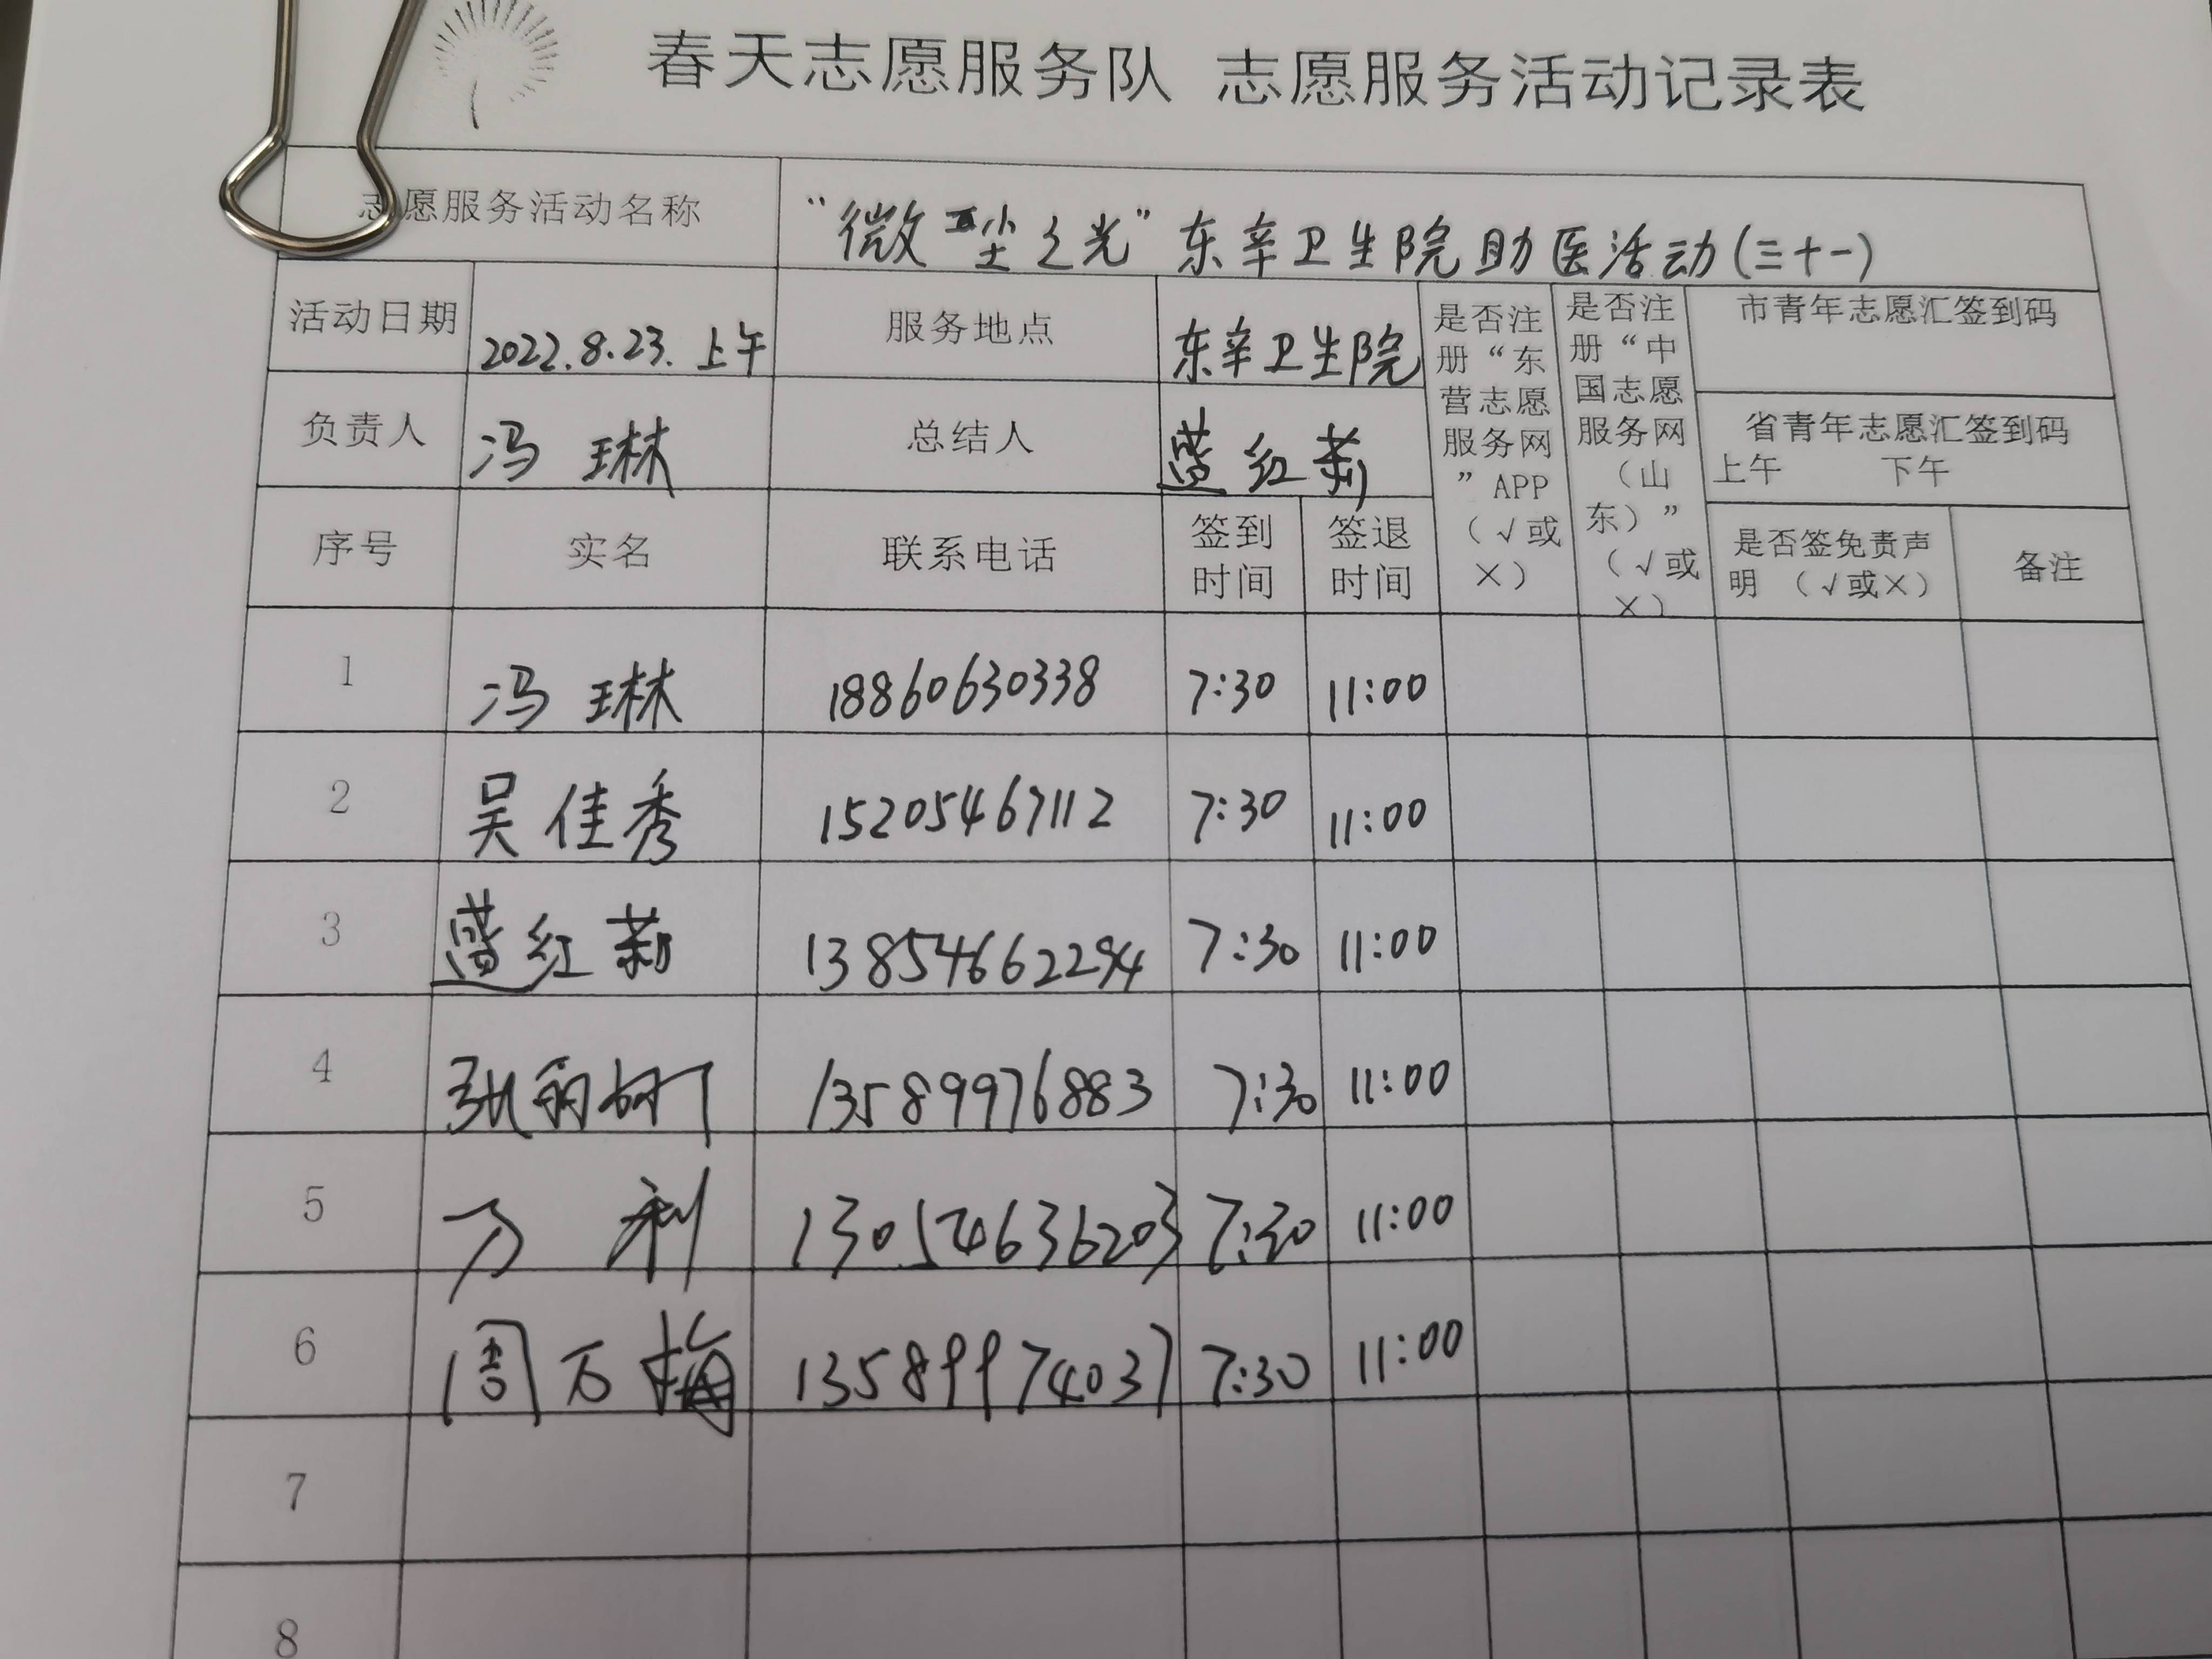 春天志愿服务队 志愿服务活动记录表
志愿服务活动名称 “微尘之光”东辛卫生院助医活动(三十一)
活动日期 2022.8.23.上午 服务地点 东辛卫生院 是否注册“东营志愿服务网”APP（√或×） 是否注册“中国志愿服务网（山东）”（√或×） 市青年志愿汇签到码
负责人 冯琳 总结人 蓝红莉 省青年志愿汇签到码
上午 下午
序号 实名 联系电话 签到时间 签退时间 是否签免责声明（√或×） 备注
1 冯琳 18860630338 7:30 11:00
2 吴佳秀 15205467112 7:30 11:00
3 蓝红莉 13854662294 7:30 11:00
4 13589976883 7:30 11:00
5 万利 13054636203 7:30 11:00
6 周万梅 13589974037 7:30 11:00
7
8